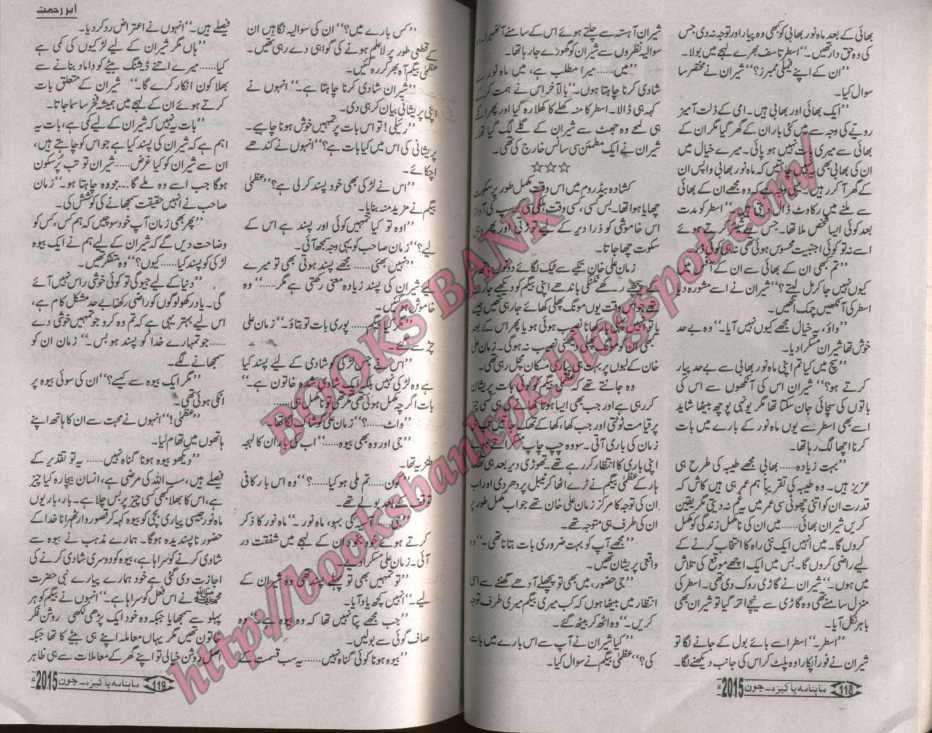 بھائی کے بعد ماہ نور بھابی کو کھو کر وہ پیار اور توجہ نہ دی جس
کی وہ حق دار تھیں۔“ اسطر تاسف بھرے لہجے میں بولا۔
”ان کے اپنے فیملی ممبرز؟“ شیران نے مختصر سا
سوال کیا۔
”ایک بھائی اور بھابی ہیں۔ امی کے ذلت آمیز
رویے کی وجہ سے میں کئی بار ان کے گھر گیا مگر ان کے
بھائی سے میری بات نہیں ہو پائی۔ میرے خیال میں
وہ چاہتے نہیں تھے کہ ماہ نور بھابی واپس ان
کے گھر آ کر رہیں
سے ملنے میں رکاوٹ
بعد کوئی ایسا شخص ملا تھا۔ جس سے
اسے نہ تو کوئی اجنبیت محسوس ہوئی تھی نہ ہی کوئی
”تم کبھی ان کے بھائی سے ان کے آفس میں
کیوں نہیں جا کر مل لیتے؟“ شیران نے اسے مشورہ دیا
اسطر کی آنکھیں چمک اٹھیں۔
”واؤ، یہ خیال مجھے کیوں نہیں آیا۔“ وہ بے حد
خوش تھا شیران مسکرا دیا۔
”سچ میں کیا تم اپنی ماہ نور بھابی سے بے حد پیار
کرتے ہو؟“ شیران اس کی آنکھوں سے اس کی
باتوں کی سچائی جان سکتا تھا مگر یونہی پوچھ بیٹھا شاید
اسے بھی اسطر سے یوں ماہ نور کے بارے میں بات
کرنا اچھا لگ رہا تھا۔
”بہت زیادہ...... بھابی مجھے طیبہ کی طرح ہی
عزیز ہیں۔ وہ طیبہ کی تقریباً ہم عمر ہی ہیں کاش کہ
قدرت ان کو اتنی چھوٹی سی عمر میں یہ غم نہ دیتی مگر یقین
کریں شیران بھائی...... میں ان کی نامکمل زندگی کو مکمل
کروں گا۔ میں انہیں ایک نئی راہ کا انتخاب کرنے کے
لیے راضی کروں گا۔ بس میں ایک اچھے موقع کی تلاش
میں ہوں۔“ شیران نے گاڑی روک دی تھی۔ اسطر کی
منزل سامنے تھی وہ گاڑی سے نیچے اتر گیا تو شیران بھی
باہر نکل آیا۔
”اسطر۔“ اسطر اسے بائے بول کے جانے لگا تو
شیران نے فوراً پکارا وہ پلٹ کر اس کی جانب دیکھنے لگا۔
شیران آہستہ سے چلتے ہوئے اس کے سامنے آ
سوالیہ نظروں سے شیران کو گھورے جا رہا تھا۔
”میں...... میرا مطلب ہے، میں ماہ نور
شادی کرنا چاہتا ہوں۔“ بالآخر اس نے ہمت کر
کہہ ہی ڈالا۔ اسطر کا منہ کھلے کا کھلا رہ گیا اور پھر
ہی لمحے وہ جھٹ سے شیران کے گلے لگ گیا
شیران نے ایک مطمئن سی سانس خارج کی تھی۔
☆☆☆
کشادہ بیڈروم میں اس وقت مکمل طور پر سکوت
چھایا ہوا تھا۔ بس کسی، کسی وقت
اس خاموشی کو ذرا دیر کے لیے توڑتی اور پھر
سکوت چھا جاتا۔
زمان علی خان تکیے سے ٹیک لگائے
وہ جانتے تھے کہ
کر رہی ہے اور جب بھی ایسا ہوتا
پر قیامت ٹوٹتی اور جب
زمان کی باری آتی۔ سو وہ چپ چاپ
اپنی باری کا انتظار کر رہے تھے۔ تھوڑی دیر بعد ہی
ہار کے عظمیٰ بیگم نے ٹرے اٹھا کر ٹیبل پر دھر دی اور اب
ان کی توجہ کا مرکز زمان علی خان تھے جو اب مکمل طور
ان کی طرف ہی متوجہ تھے۔
”مجھے آپ کو بہت ضروری بات بتانا تھی۔“ وہ
واقعی پریشان لگیں۔
”جی حضور، میں بھی تو پچھلے آدھے گھنٹے سے اسی
انتظار میں بیٹھا ہوں کہ کب میری بیگم میری طرف توجہ
کریں۔“ وہ اٹھ کر بیٹھ گئے۔
”کیا شیران نے آپ سے اس بارے میں بات
کی؟“ عظمیٰ بیگم نے سوال کیا۔
118 ماہنامہ پاکیزہ۔ جون 2015ء
ابر رحمت
”کس بارے میں؟“ ان کی سوالیہ نگاہیں ان
کے قطعی طور پر لاعلم ہونے کی گواہی دے رہی تھیں۔
عظمیٰ بیگم آہ بھر کر رہ گئیں۔
”شیران شادی کرنا چاہتا ہے۔“ انہوں نے
اپنی پریشانی بیان کر ہی دی۔
”رئیلی! تو اس بات پر تمہیں خوش ہونا چاہیے۔
پریشانی کی اس میں کیا بات ہے؟“ انہوں نے کندھے
اچکائے۔
”اس نے لڑکی بھی خود پسند کر لی ہے؟“ عظمیٰ
بیگم نے مزید منہ بنایا۔
”اوہ تو کیا تمہیں کوئی اور پسند ہے اس کے
لیے؟“ زمان صاحب کو یہی وجہ سمجھ آئی۔
”نہیں بھئی...... مجھے پسند ہوتی بھی تو میرے
لیے شیران کی پسند زیادہ معنی رکھتی ہے مگر......“ وہ
خاموش ہو گئیں۔
پوری بات تو بتاؤ۔“ زمان علی
”اس نے جس لڑکی کو شادی کے لیے پسند کیا
ہے وہ لڑکی نہیں بلکہ ایک شادی شدہ خاتون ہے۔“
”واٹ......؟“ زمان علی
”جی اور وہ بھی بیوہ......“ اب کی بار ان کا لہجہ
تم ملی ہو کیا......؟“ وہ اس بار کافی
کی بہو، ماہ نور۔“ ماہ نور کا ذکر
کرتے ہوئے خود بخود ان کے لہجے میں شفقت در
آئی۔ زمان علی مسکرا
شیران کے
لیے۔“ انہیں کچھ یاد آیا۔
”جب مجھے پتا نہیں تھا کہ وہ بیوہ ہے۔“ وہ
صاف گوئی سے بولیں۔
”بیوہ ہونا کوئی گناہ نہیں...... یہ سب قسمت کے
فیصلے ہیں۔“ انہوں نے اعتراض رد کر دیا۔
”ہاں مگر شیران کے لیے لڑکیوں کی کمی ہے
کیا...... میرے اتنے ڈیشنگ بیٹے کو داماد بنانے سے
بھلا کون انکار کرے گا۔“ شیران کے متعلق بات
کرتے ہوئے ان کے لہجے میں ہمیشہ فخر سا سما جاتا۔
”بات یہ نہیں کہ شیران کے لیے کمی ہے، بات یہ
اہم ہے کہ شیران کی پسند کیا ہے جو اس کو چاہتے ہیں،
ان سے شیران کو کیا غرض...... شیران تو تب پُرسکون
ہو گا جب اسے وہ ملے گا...... جو وہ چاہتا ہو۔“ زمان
صاحب نے انہیں حقیقت سمجھانے کی کوشش کی۔
”پھر بھی زمان آپ خود سوچیں کہ ہم کس، کس کو
وضاحت دیں گے کہ شیران کے لیے ہم نے ایک بیوہ
لڑکی کو پسند کیا...... کیوں؟“ وہ متفکر تھیں۔
”دنیا کے لیے جیو گی تو کوئی خوشی راس نہیں آئے
گی۔ یاد رکھو لوگوں کو راضی رکھنا بے حد مشکل کام ہے،
اس لیے بہتر یہی ہے کہ تم وہ کرو جو تمہیں خوشی دے
...... جو تمہارے خدا کو پسند ہو بس۔“ زمان ان کو
سمجھانے لگے۔
”مگر ایک بیوہ سے کیسے؟“ ان کی سوئی بیوہ پر
اٹکی ہوئی تھی۔
”عظمیٰ!“ انہوں نے محبت سے ان کا ہاتھ اپنے
ہاتھوں میں تھام لیا۔
”دیکھو بیوہ ہونا گناہ نہیں...... یہ تو تقدیر کے
فیصلے ہیں، سب اللہ کی مرضی ہے، انسان بیچارہ کیا چیز
ہے، اس کا بھلا کبھی کسی چیز پر بس چلا ہے۔ بار، بار یوں
ماہ نور جیسی پیاری بچی کو بیوہ کہہ کر قصوروار ٹھہرانا خدا کے
حضور ناپسندیدہ ہو گا۔ ہمارے مذہب نے بیوہ سے
شادی کرنے کو سراہا ہے، بیوہ کو دوسری شادی کرنے کی
اجازت دی گئی ہے خود ہمارے پیارے نبی حضرت
محمدﷺ نے اس فعل کو سراہا ہے۔“ انہوں نے بیگم کو ہر
پہلو سے سمجھایا جبکہ وہ خود ایک پڑھی لکھی روشن فکر
خاتون تھیں مگر یہاں معاملہ اپنے ہی بیٹے کا تھا جبکہ
اصل روشن خیالی تو اپنے گھر کے معاملات سے ہی ظاہر
119 ماہنامہ پاکیزہ۔ جون 2015ء
BOOKS BANK
http://booksbankpk.blogspot.com/